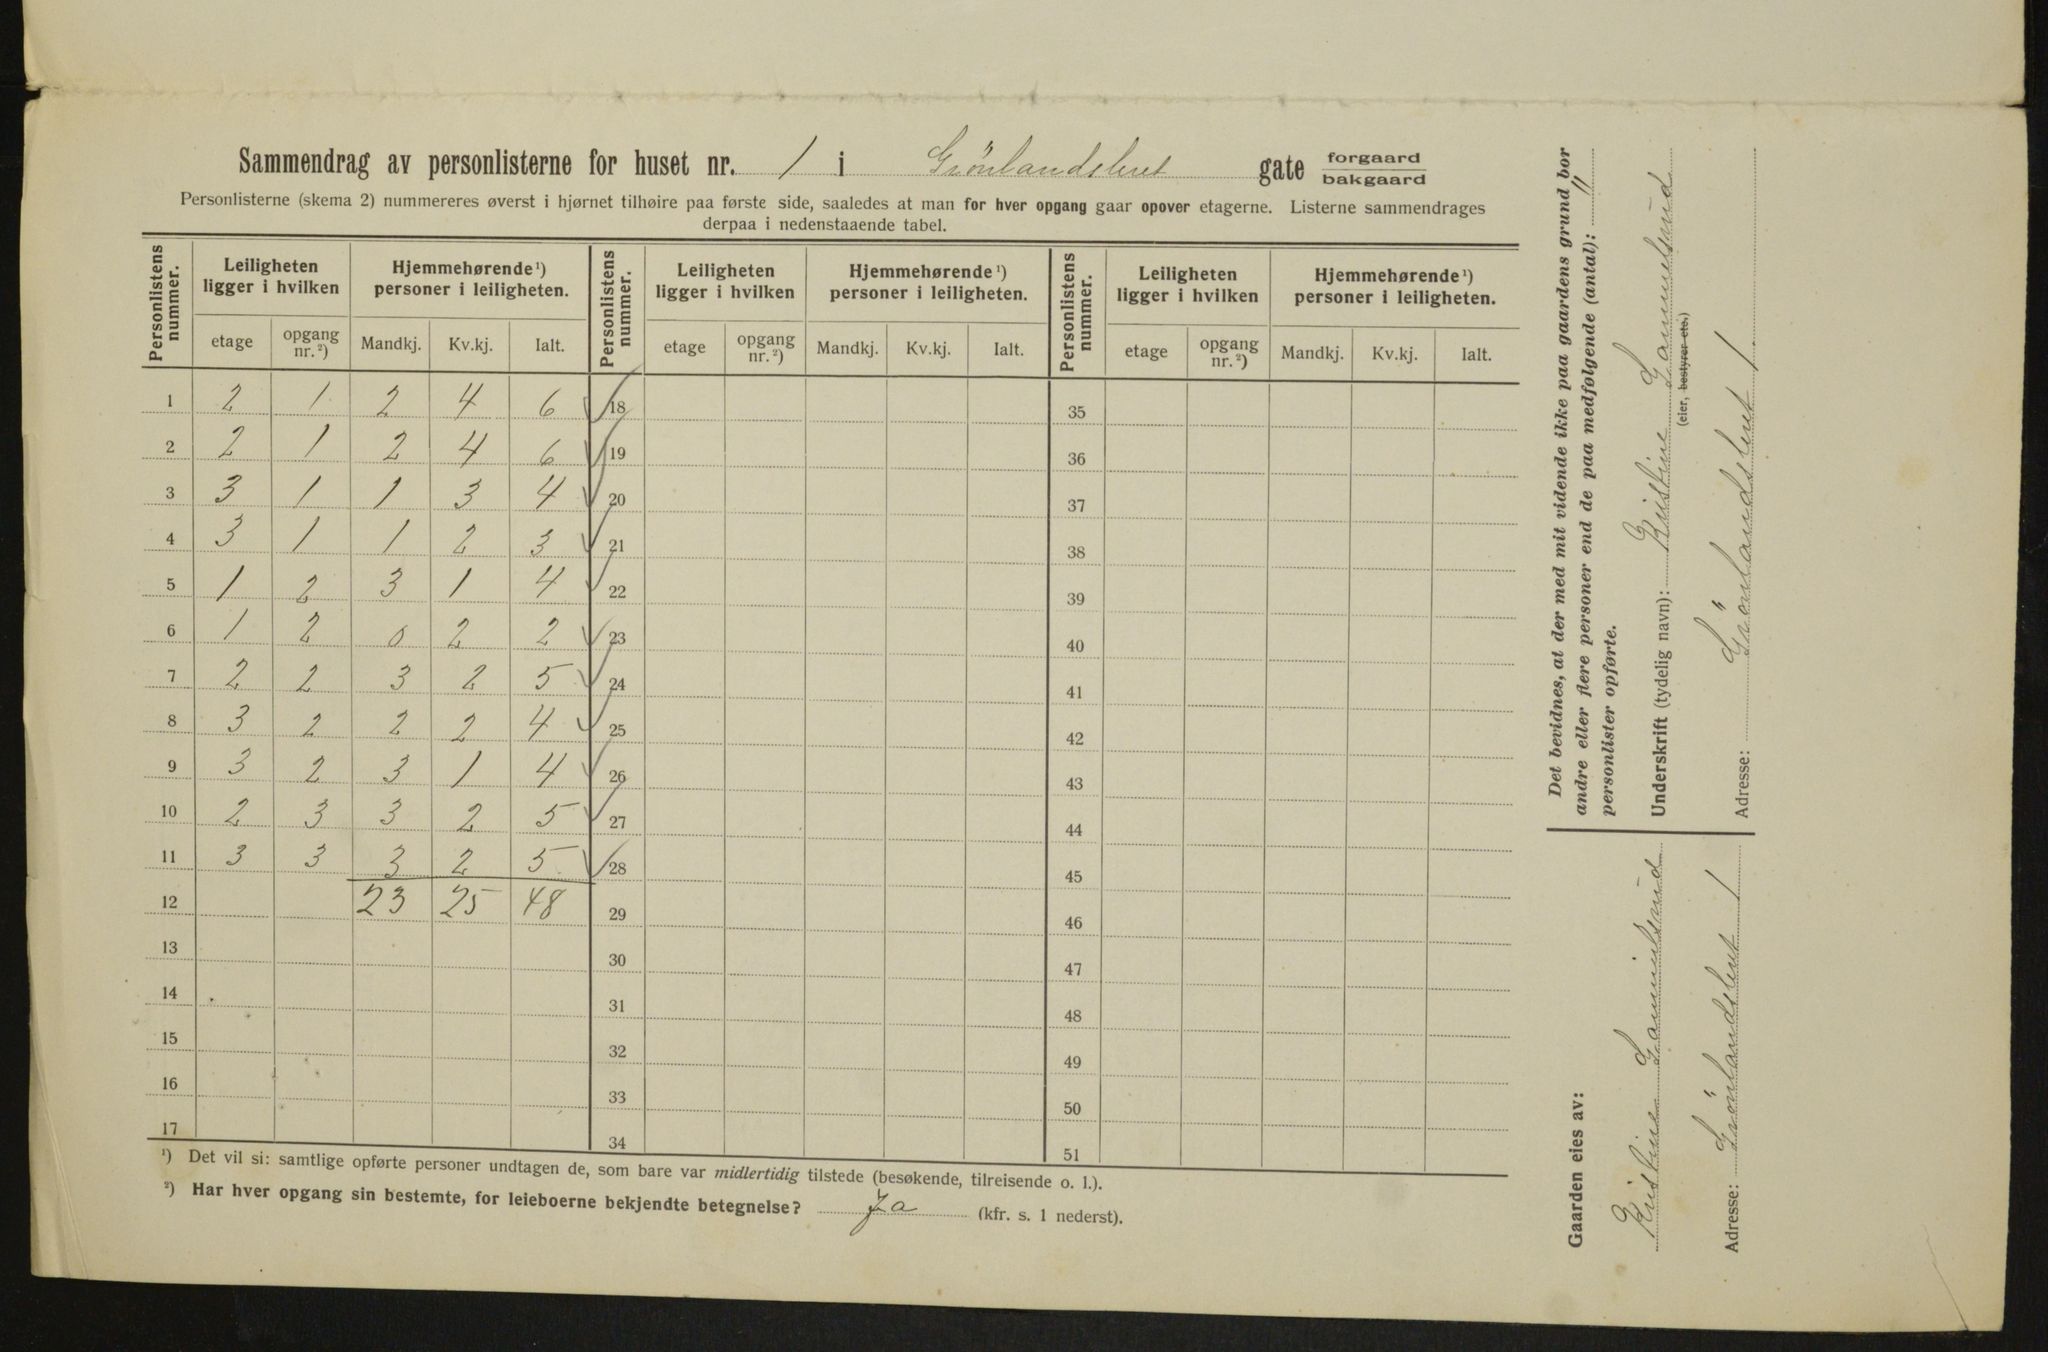 Sammendrag av personlisterne for huset nr. 1 i Grönlandsleret gate forgaard bakgaard
Personlisterne (skema 2) nummereres øverst i hjørnet tilhøire paa første side, saaledes at man for hver opgang gaar opover etagerne. Listerne sammendrages
derpaa i nedenstaaende tabel.
Personlistens nummer. Leiligheten ligger i hvilken Hjemmehørende¹) personer i leiligheten. Personlistens nummer. Leiligheten ligger i hvilken Hjemmehørende¹) personer i leiligheten. Personlistens nummer. Leiligheten ligger i hvilken Hjemmehørende¹) personer i leiligheten.
etage opgang nr.²) Mandkj. Kv.kj. Ialt. etage opgang nr.²) Mandkj. Kv.kj. Ialt. etage opgang nr.²) Mandkj. Kv.kj. Ialt.
1 2 1 2 4 6 18 35
2 2 1 2 4 6 19 36
3 3 1 1 3 4 20 37
4 3 1 1 2 3 21 38
5 1 2 3 1 4 22 39
6 1 2 0 2 2 23 40
7 2 2 3 2 5 24 41
8 3 2 2 2 4 25 42
9 3 2 3 1 4 26 43
10 2 3 3 2 5 27 44
11 3 3 3 2 5 28 45
12 23 25 48 29 46
13 30 47
14 31 48
15 32 49
16 33 50
17 34 51
¹) Det vil si: samtlige opførte personer undtagen de, som bare var midlertidig tilstede (besøkende, tilreisende o. l.).
²) Har hver opgang sin bestemte, for leieboerne bekjendte betegnelse? Ja (kfr. s. 1 nederst).
Det bevidnes, at der med mit vidende ikke paa gaardens grund bor
andre eller flere personer end de paa medfølgende (antal): 11
personlister opførte.
Underskrift (tydelig navn): Kristine Samuelsrud
(eier, bestyrer etc.)
Adresse: Grönlandsleret 1
Gaarden eies av:
Kristine Samuelsrud
Adresse: Grönlandsleret 1